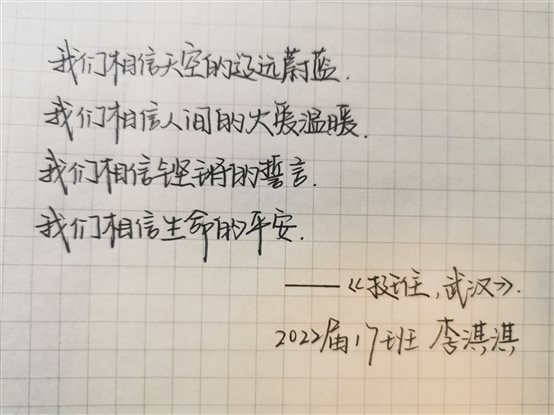 我们相信天空的辽远蔚蓝.
我们相信人间的大爱温暖.
我们相信铿锵的誓言.
我们相信生命的平安.
——《挺住,武汉》.
2022届17班 李淇淇